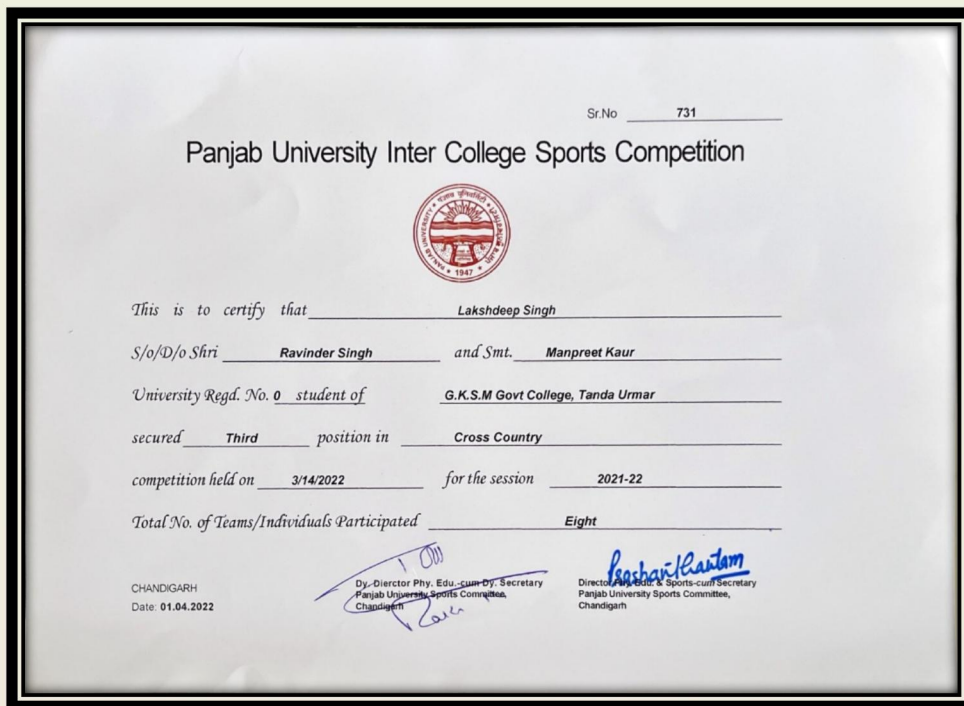 Sr.No 731
Panjab University Inter College Sports Competition
PANJAB UNIVERSITY
1947
This is to certify that Lakshdeep Singh
S/o/D/o Shri Ravinder Singh and Smt. Manpreet Kaur
University Regd. No. 0 student of G.K.S.M Govt College, Tanda Urmar
secured Third position in Cross Country
competition held on 3/14/2022 for the session 2021-22
Total No. of Teams/Individuals Participated Eight
CHANDIGARH
Date: 01.04.2022
Dy. Dierctor Phy. Edu.-cum Dy. Secretary
Panjab University Sports Committee,
Chandigarh
Director Phy. Edu. & Sports-cum Secretary
Panjab University Sports Committee,
Chandigarh